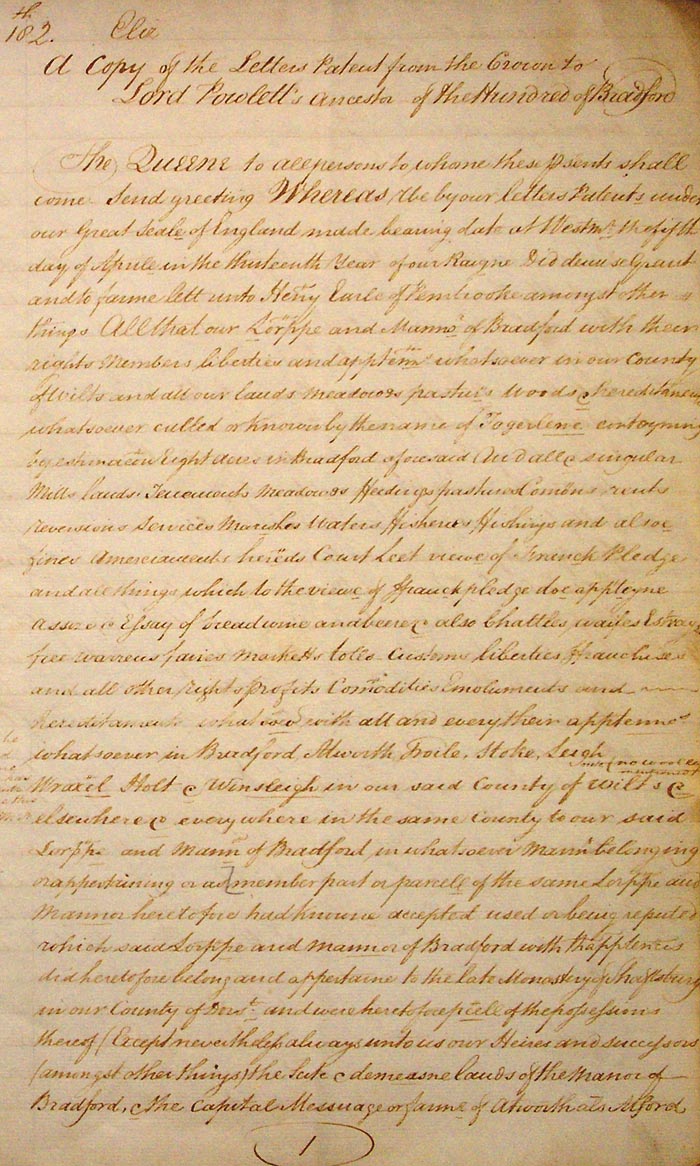 182. Eliz
A Copy of the Letters Patent from the Crown to
Lord Powlett's Ancestor of the Hundred of Bradford
The Queene to all persons to whome these psents shall
come Send greeting Whereas We by our letters Patents under
our Great Seale of England made bearing date at Westmr. the fifth
day of Aprile in the thirteenth Year of our Raigne Did demise Grant
and to farme lett unto Henry Earle of Pembrooke amongst other
things All that our Lorppe and Mannor of Bradford with their
rights Members liberties and apptennts whatsoever in our County
of Wilts and all our lands meadows pastures Woods & hereditaments
whatsoever called or known by the name of contayning
by estimacon Eight Acres in Bradford aforesaid And all & singular
Mills lands Tenements Meadows feedings pastures Comons rents
reversions Services Marishes Waters Fisheries Fishings and alsoe
fines Amerciaments hereds Court Leet viewe of Franck Pledge
and all things which to the viewe of ffranckpledge doe apptayne
Assize & Essay of bread wine and beere & also Chattles waifes Estrays
free warrens faires Marketts tolls Customs liberties ffranchises
and all other rights profits Comodities Emoluments and
hereditaments whatsoever with all and every their apptennces
whatsoever in Bradford Atworth, Troile, Stoke, Leigh
Wraxel Holt & Winsleigh in our said County of Wilts &
elsewhere & everywhere in the same County to our said
Lorppe and Mannr of Bradford in whatsoever Mannr belonging
or appertaining or as member part or parcell of the same Lorppe and
Mannor heretofore had knowne accepted used or being reputed
which said Lorppe and Mannor of Bradford with thapptences
did heretofore belong and appertaine to the late Monastery of Shaftsbury
in our County of Dorst. and were heretofore pcell of the possessions
thereof (Except nevertheless always unto us our Heires and successors
(amongst other things) the Scite & demeasne lands of the Manor of
Bradford, & the Capital Messuage or farme of Atworth als Atford
1